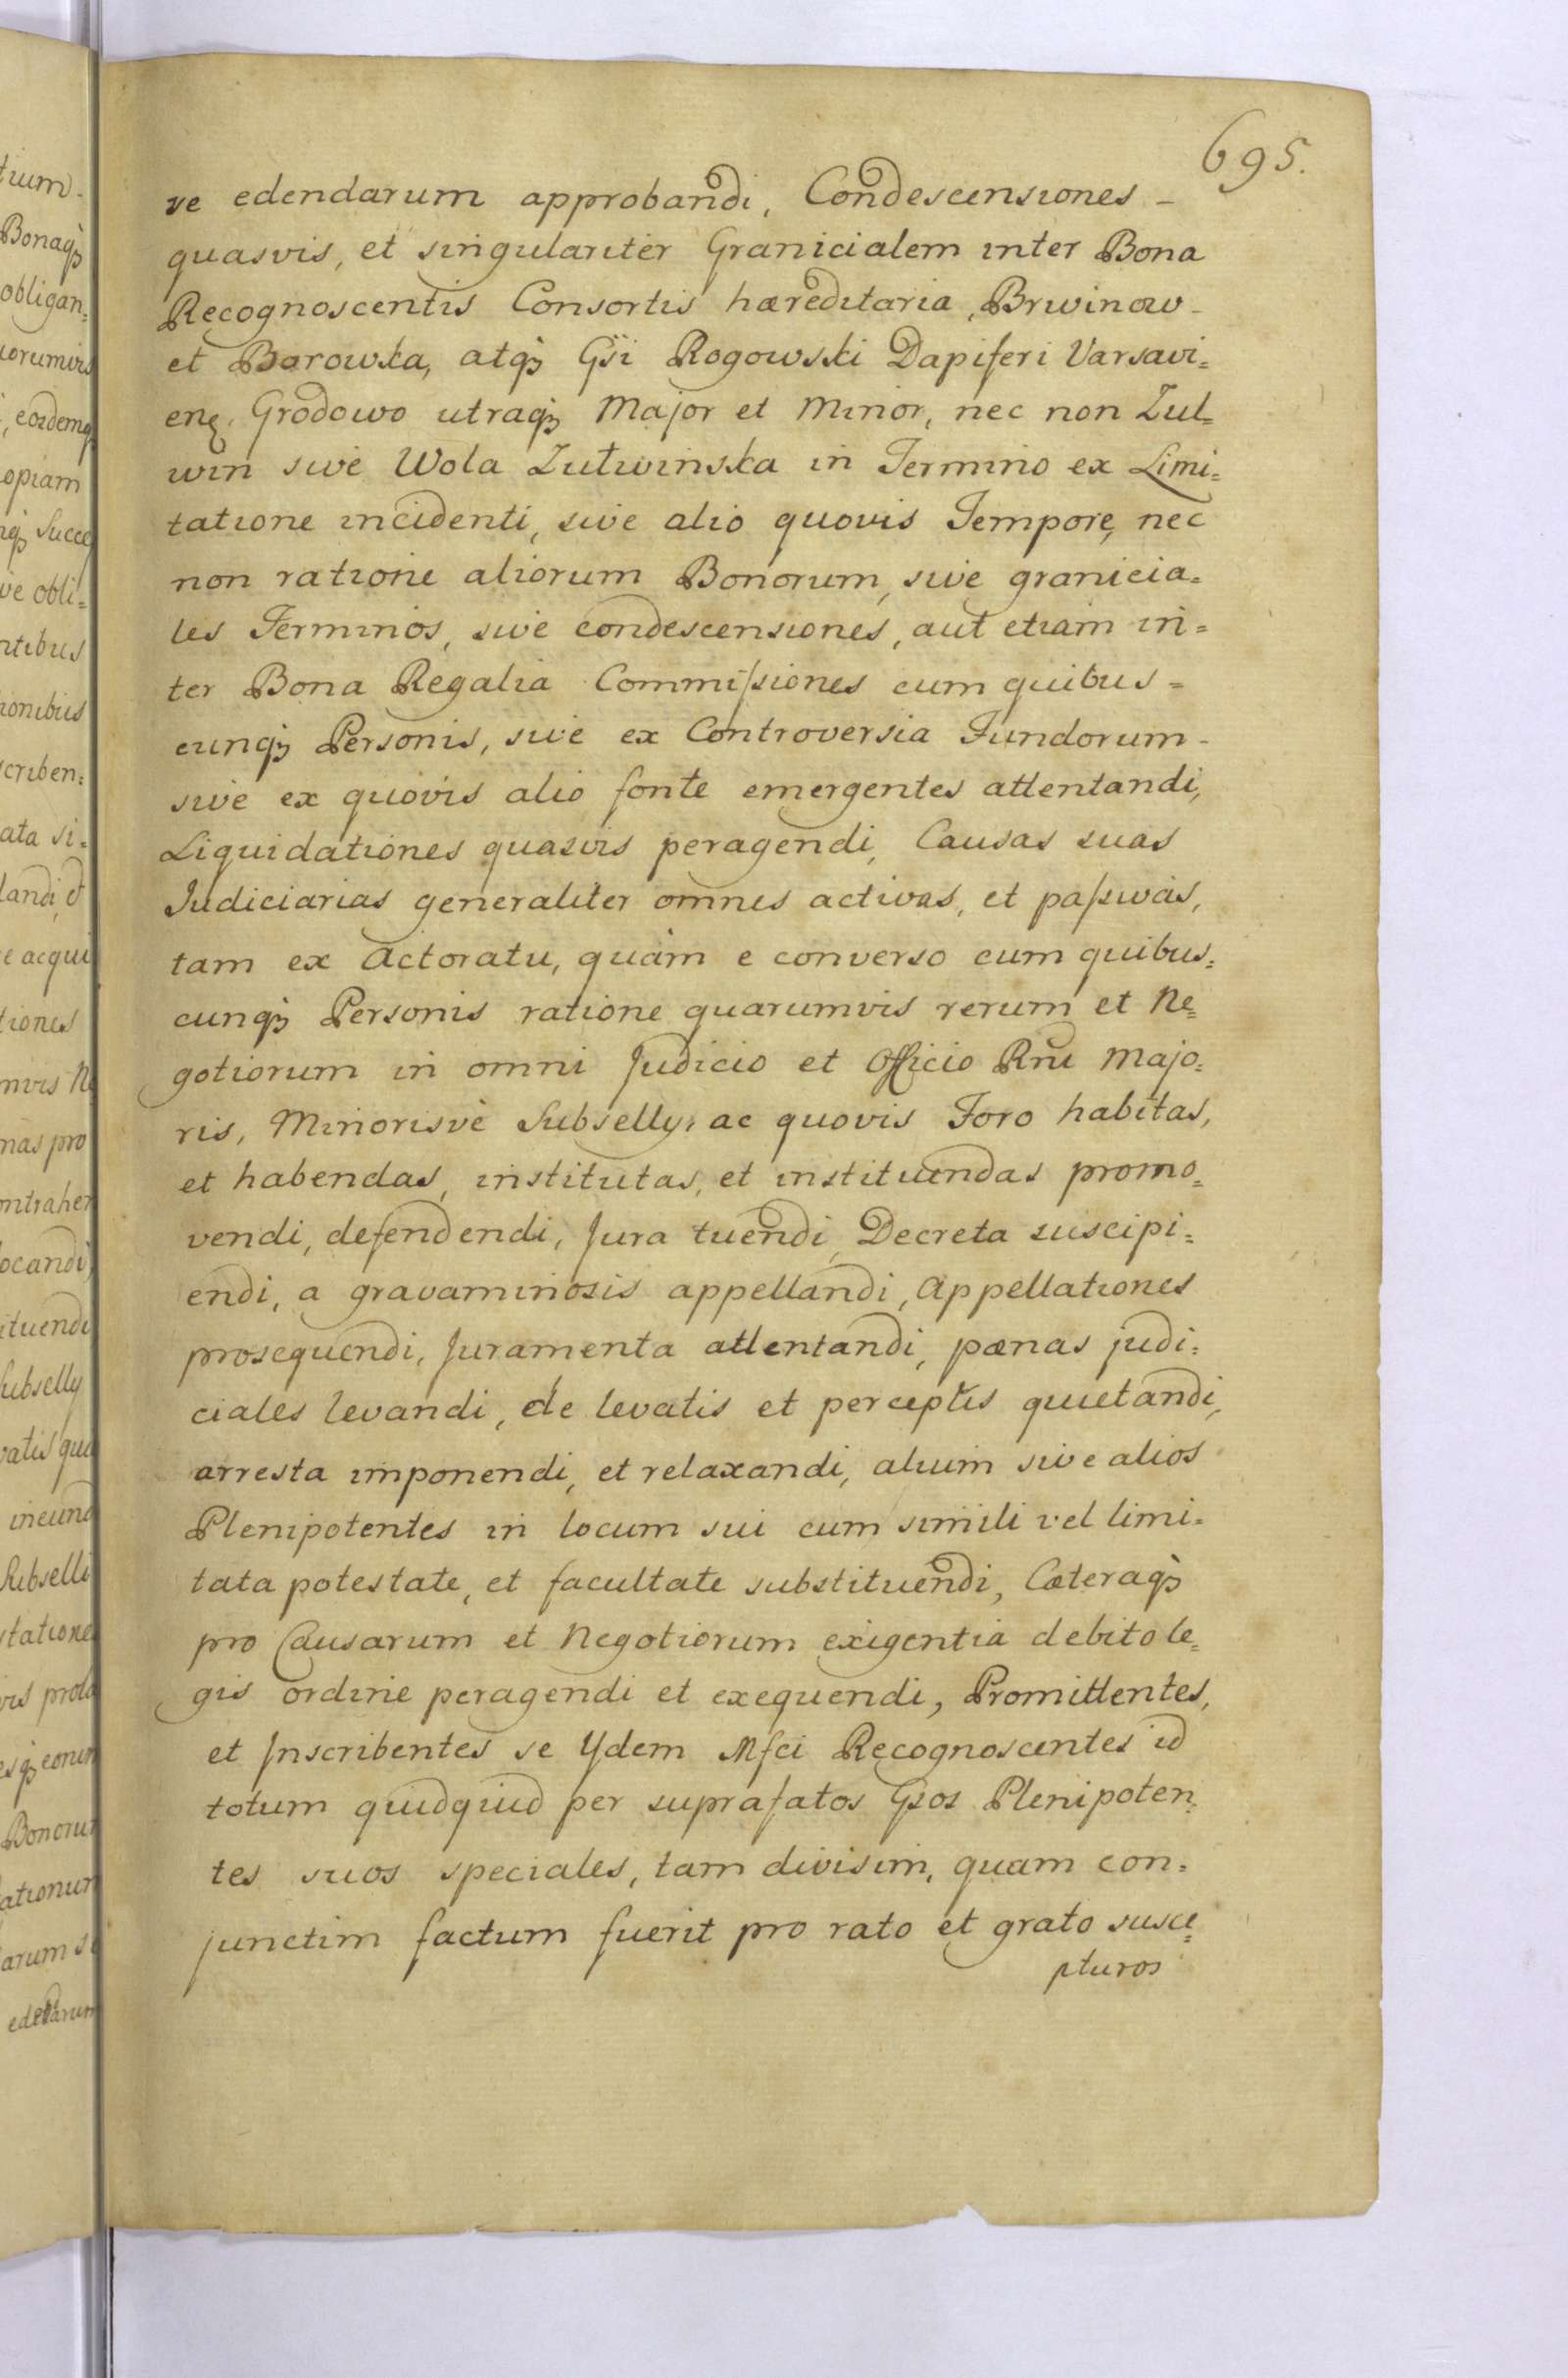 695.
ve edendarum approbandi, Condescensiones -
quasvis, et singulariter Granicialem inter Bona
Recognoscentis Consortis hæreditaria, Brwinow -
et Borowka, atqꝫ Gsi Rogowski Dapiferi Varsavi=
enꝭ. Grodowo utraqꝫ Major et Minor, nec non Zul=
win sive Wola Zutwinska in Termino ex Limi=
tatione incidenti, sive alio quovis Tempore, nec
non ratione aliorum Bonorum, sive granicia=
les Terminos, sive condescensiones, aut etiam in=
ter Bona Regalia Commissiones cum quibus=
cunqꝫ Personis, sive ex Controversia Fundorum -
sive ex quovis alio fonte emergentes attentandi,
Liquidationes quasvis peragendi, Causas suas
Judiciarias generaliter omnes activas, et passivas,
tam ex Actoratu, quàm e converso cum quibus=
cunqꝫ Personis ratione quarumvis rerum et Ne=
gotiorum in omni Judicio et Officio Rni Majo=
ris, Minorisvè Subselly, ac quovis Foro habitas,
et habendas, institutas, et instituendas promo=
vendi, defendendi, Jura tuendi, Decreta suscipi=
endi, a gravaminosis appellandi, Appellationes
prosequendi, Juramenta attentandi, pœnas judi=
ciales levandi, de levatis et perceptis quietandi,
arresta imponendi, et relaxandi, alium sive alios
Plenipotentes in locum sui cum simili vel limi=
tata potestate, et facultate substituendi, Cæteraqꝫ
pro Causarum et Negotiorum exigentia debito le=
gis ordine peragendi et exequendi, Promittentes,
et Inscribentes se Ydem Mfci Recognoscentes id
totum quidquid per suprafatos Gsos Plenipoten=
tes suos speciales, tam divisim, quam con=
junctim factum fuerit pro rato et grato susce=
pturos